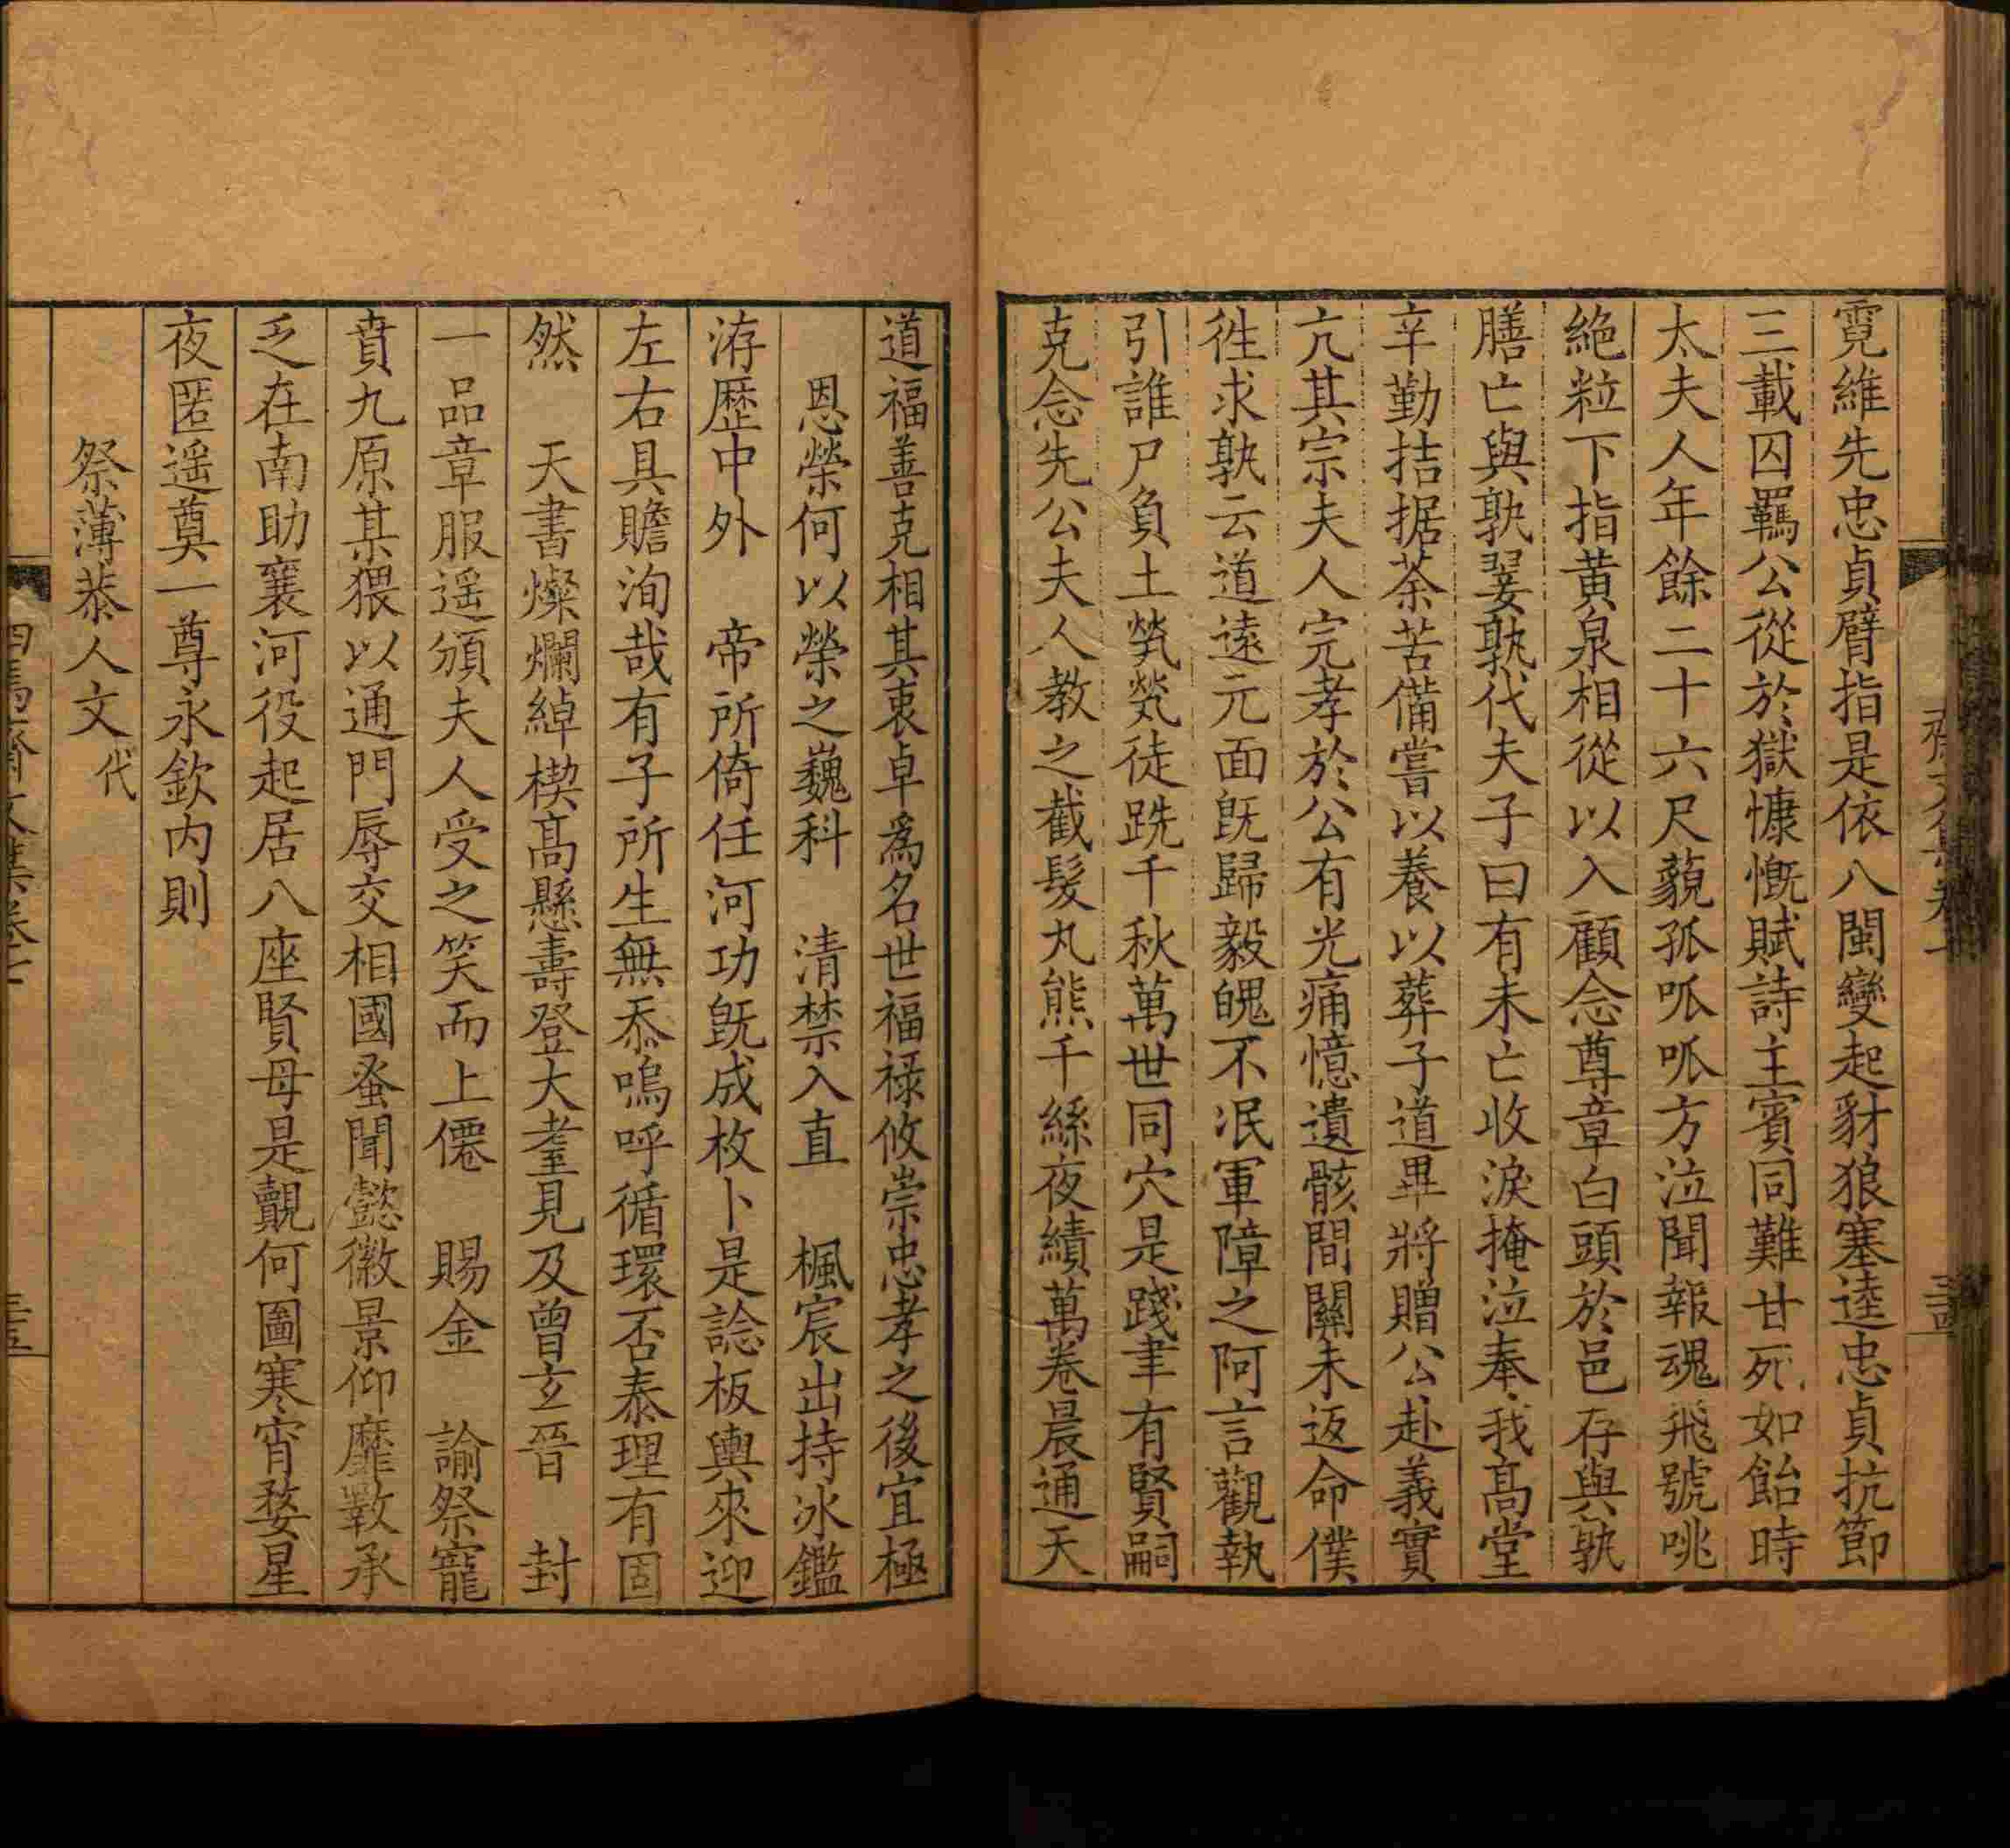 霓維先忠貞臂指是依八閩變起豺狼塞逵忠貞抗節
三載囚羈公從於獄慷慨賦詩主賓同難甘死如飴時
太夫人年餘二十六尺藐孤呱呱方泣聞報魂飛號咷
絕粒下指黃泉相從以入顧念尊章白頭於邑存與孰
膳亡與孰翣孰代夫子曰有未亡收淚掩泣奉我高堂
辛勤拮据荼苦備嘗以養以葬子道畢將贈公赴義實
亢其宗夫人完孝於公有光痛憶遺骸間關未返命僕
徃求孰云道遠元面既歸毅魄不泯軍障之阿言觀執
引誰尸負土煢煢徒跣千秋萬世同穴是踐聿有賢嗣
克念先公夫人教之截髮丸熊千絲夜績萬卷晨通天
道福善克相其衷卓為名世福祿攸崇忠孝之後宜極
恩榮何以榮之巍科　清禁入直　楓宸出持冰鑑
洊歷中外　帝所倚任河功既成枚卜是諗板輿來迎
左右具瞻洵哉有子所生無忝嗚呼循環否泰理有固
然　天書燦爛綽楔高懸壽登大耋見及曾玄晉　封
一品章服遥頒夫人受之笑而上僊　賜金　諭祭寵
賁九原某猥以通門辱交相國蚤聞懿徽景仰靡斁承
乏在南助襄河役起居八座賢母是覿何圖寒宵婺星
夜匿遥奠一尊永欽内則
祭薄恭人文 代